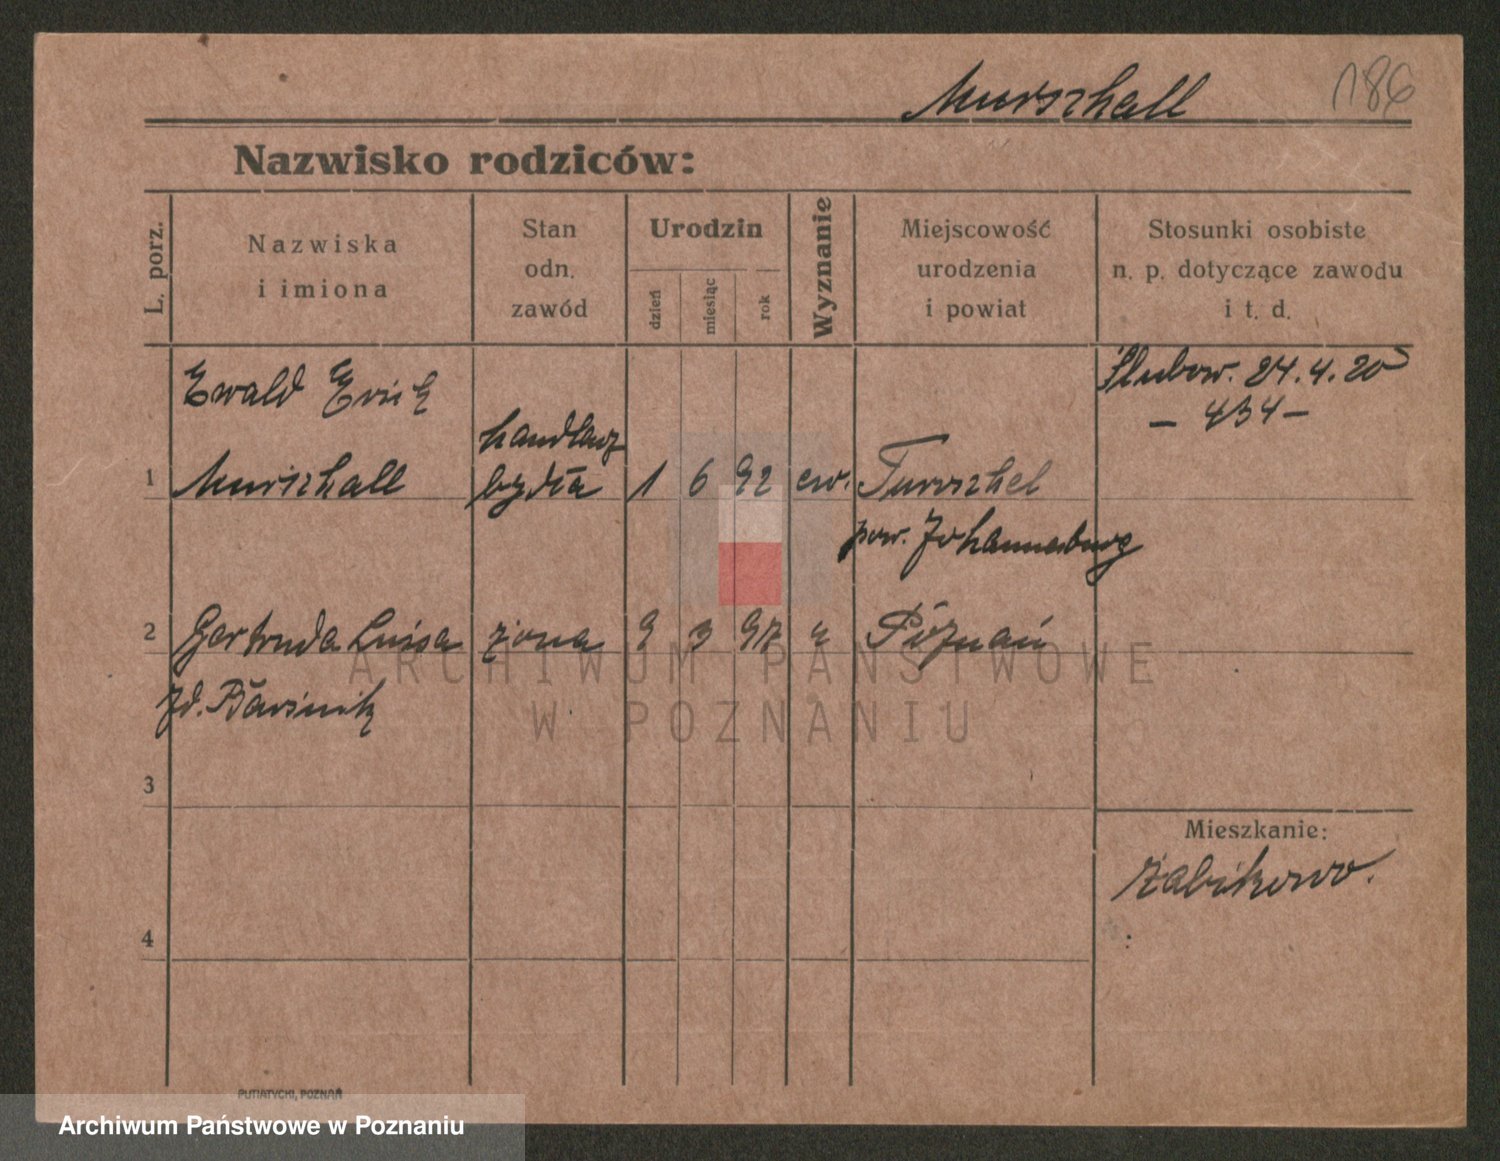 Murszhall
186
Nazwisko rodziców:
L. porz.
Nazwiska
i imiona
Stan
odn.
zawód
Urodzin
dzień
miesiąc
rok
Wyznanie
Miejscowość
urodzenia
i powiat
Stosunki osobiste
n. p. dotyczące zawodu
i t. d.
Ewald Erich
Ślubow. 24.4.20
- 434 -
handlarz
1 Murszhall bydła 1 6 92 ew. Turoszhel
pow. Johannesburg
2 Gertruda Luisa żona 9 3 97 Poznań
ARCHIWUM PAŃSTWOWE
W POZNANIU
3
Mieszkanie:
Żabikowo.
4
PUTIATYCKI, POZNAŃ
Archiwum Państwowe w Poznaniu